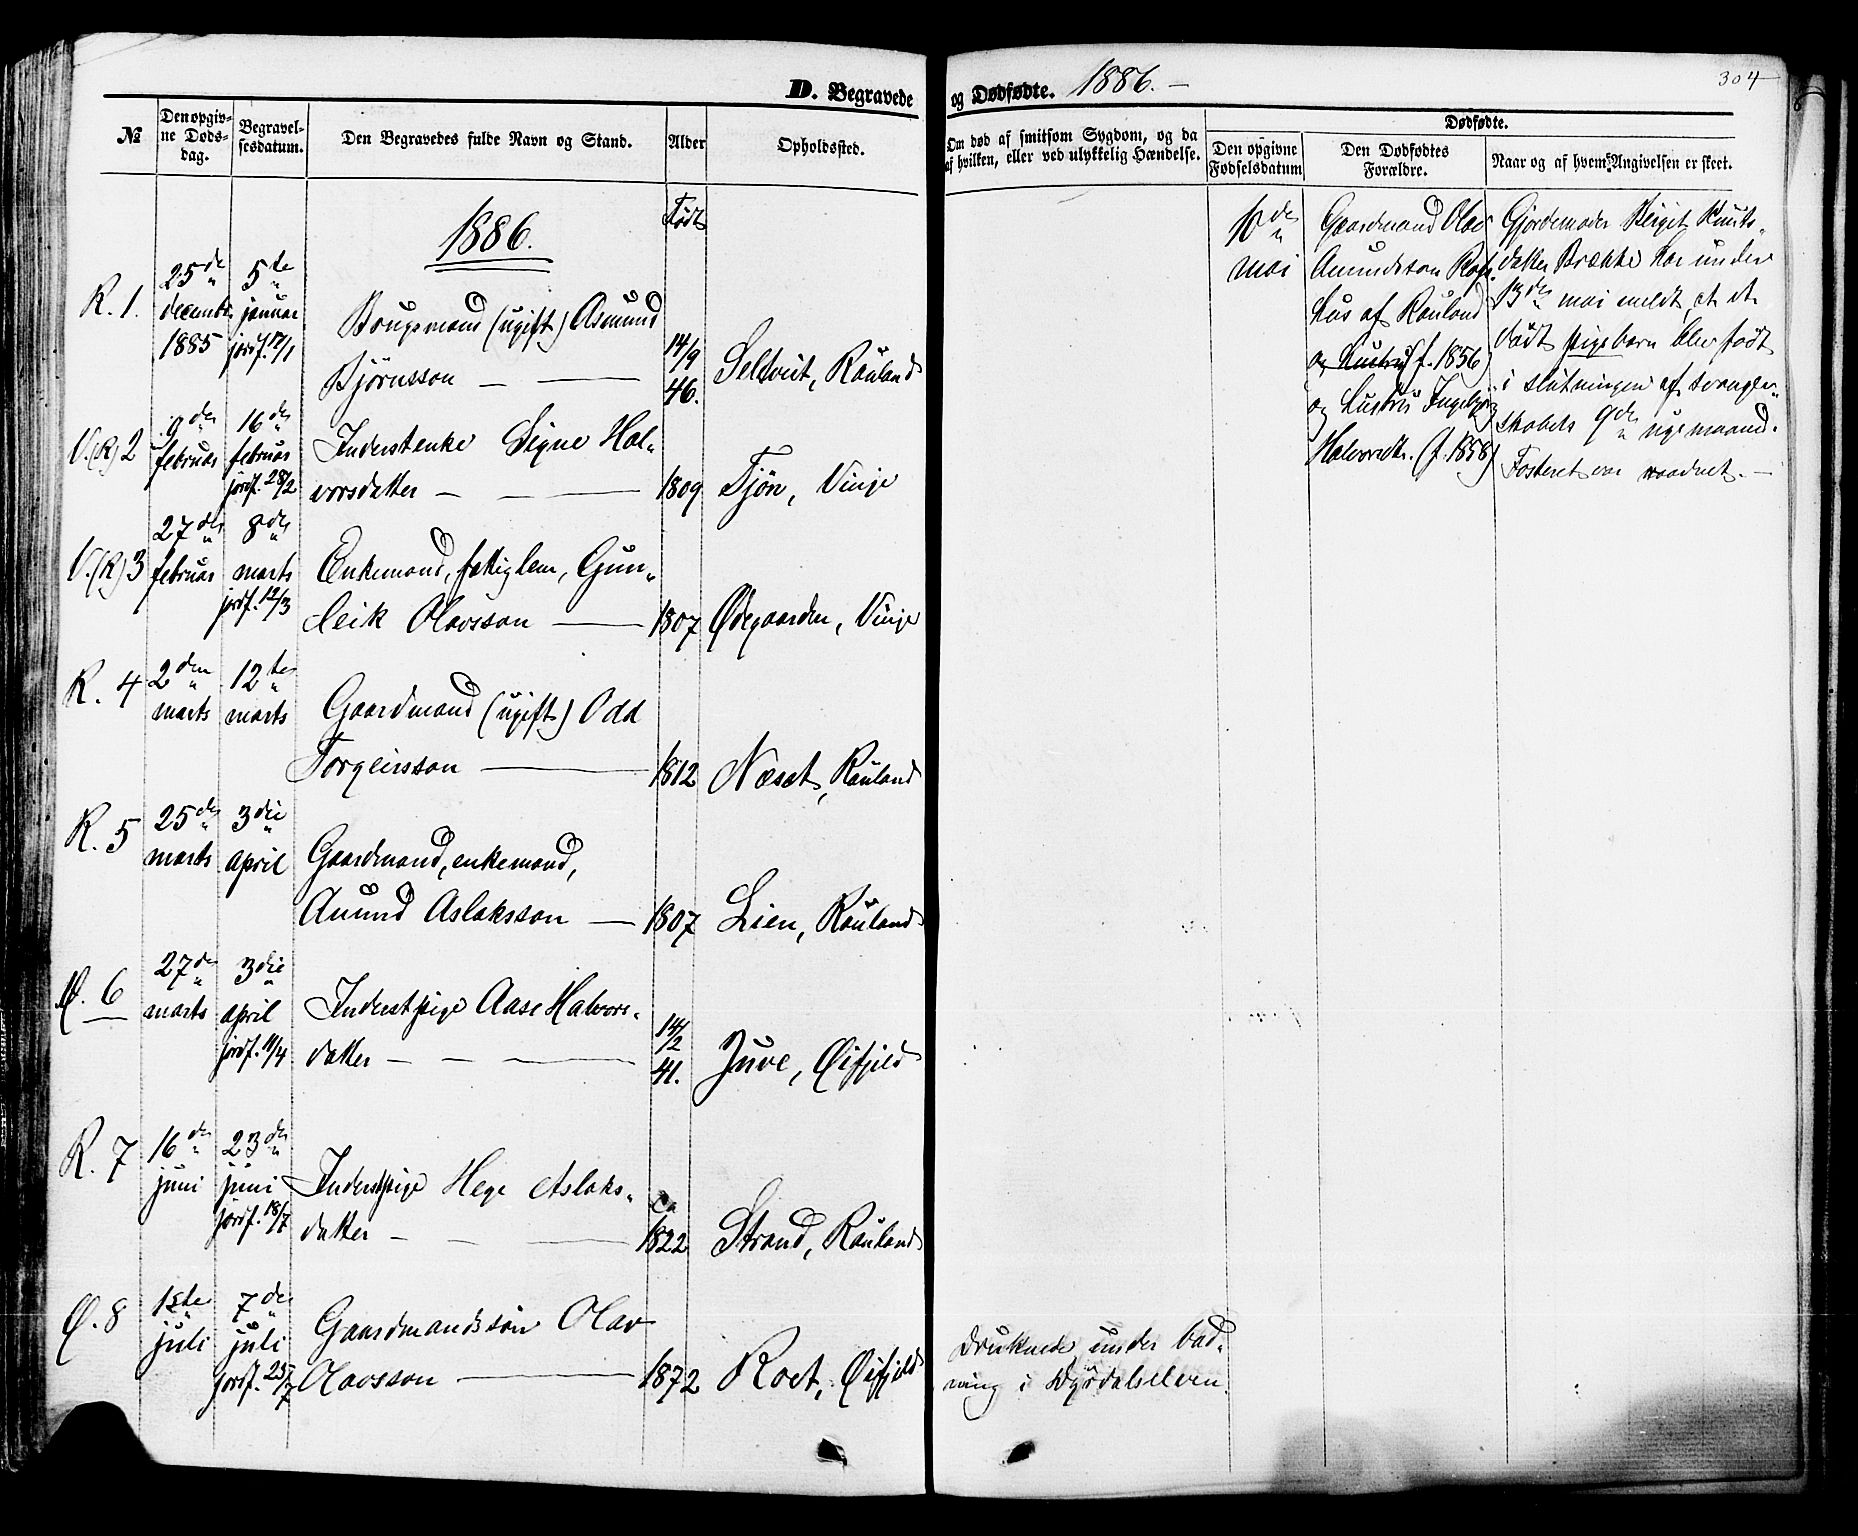 D. Begravede
og Dødfødte. 1886. –
304
№
Den opgiv-
ne Døds-
dag.
Begravel-
sesdatum.
Den Begravedes fulde Navn og Stand.
Alder
Opholdssted.
Om død af smitsom Sygdom, og da
af hvilken, eller ved ulykkelig Hændelse.
Dødfødte.
Den opgivne
Fødselsdatum
Den Dødfødtes
Forældre.
Naar og af hvem Angivelsen er skeet.
1886.
Født
R. 1.
25de
decembr.
1885
5te
januar
jordf. 17/1
Brugsmand (ugift) Asmund
Bjørnsson — —
14/9
46.
Seltveit, Rauland
V.(R) 2
9de
februar
16de
februar
jordf. 28/2
Inderstenke Signe Hal-
vorsdatter — —
1809
Tjøn, Vinje
V.(R) 3
27de
februar
8de
marts
jordf. 12/3
Enkemand, fattiglem, Gun-
leik Olavsson —
1807
Ødegaarden, Vinje
R. 4
2den
marts
12te
marts
Gaardmand (ugift) Odd
Torgeirsson —
1812
Næset, Rauland
R. 5
25de
marts
3die
april
Gaardmand, enkemand,
Anund Aslaksson —
1807
Lien, Rauland
Ø. 6
27de
marts
3die
april
jordf. 11/4
Inderstpige Aase Halvors-
datter — — —
14/2
41.
Juve, Øifjeld
R. 7
16de
juni
23de
juni
jordf. 18/7
Inderstpige Hege Aslaks-
datter — — —
Ca
1822
Strand, Rauland
Ø. 8
1ste
juli
7de
juli
jordf. 25/7
Gaardmandssøn Olav
Olavsson —
1872
Roet, Øifjeld
Druknede under bad-
ning i Dyrdalselven.
10de
mai
Gaardmand Olav
Amundsson
hus af Rauland
og hustru (f. 1856)
og hustru Ingebjørg
Halvorsdtr. (f. 1858)
Gjordemoder Birget Knuts-
datter Brække har under
13de mai meldt, at et
dødt pigebarn blev født
i slutningen af svanger-
skabets 9de ugemaaned.
Fosteret var raadnet. —